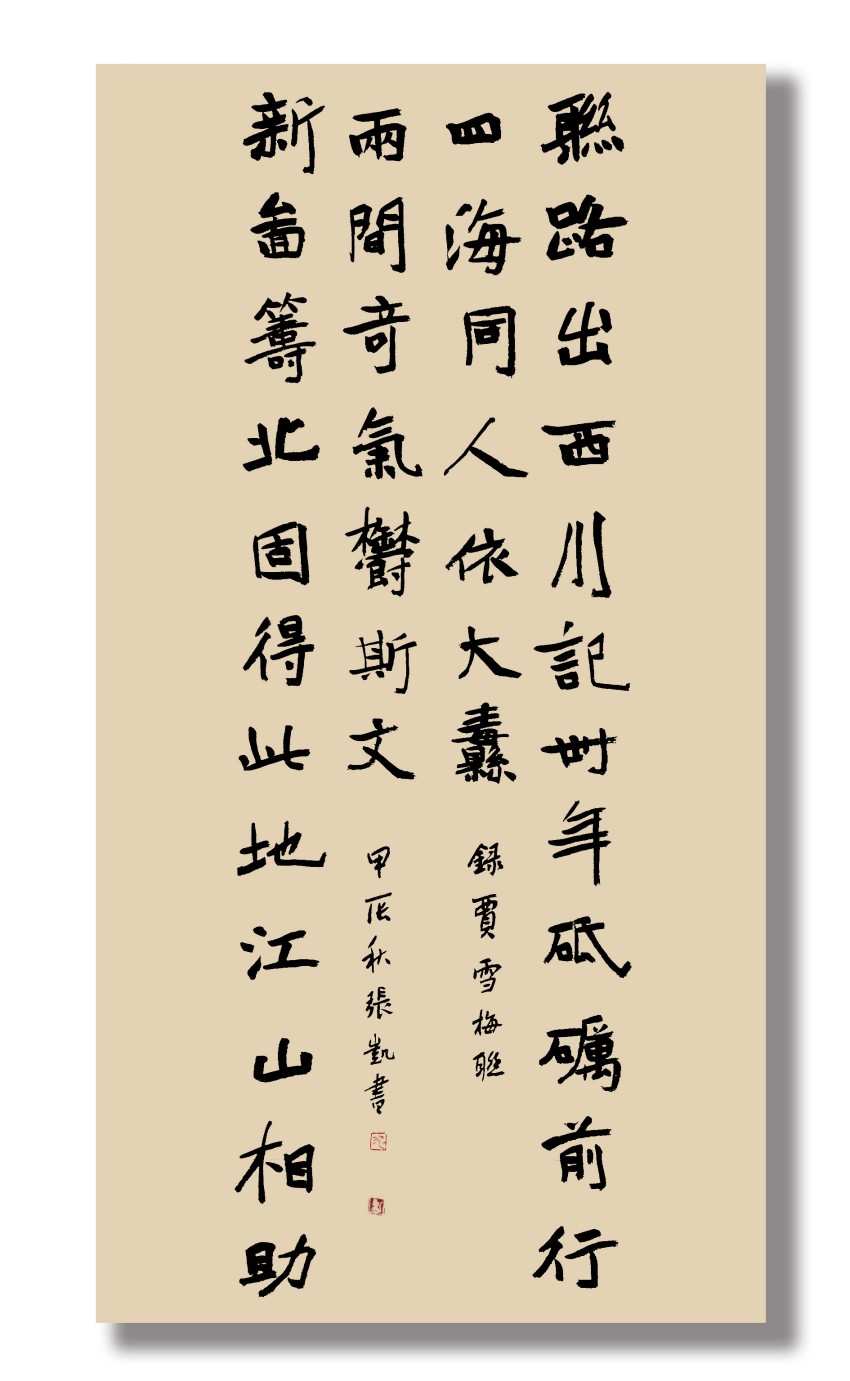 聯路出西川記卌年砥礪前行
四海同人依大纛
録賈雪梅聯
新啚籌北固得此地江山相助
兩間竒氣欝斯文
甲辰秋張凱書